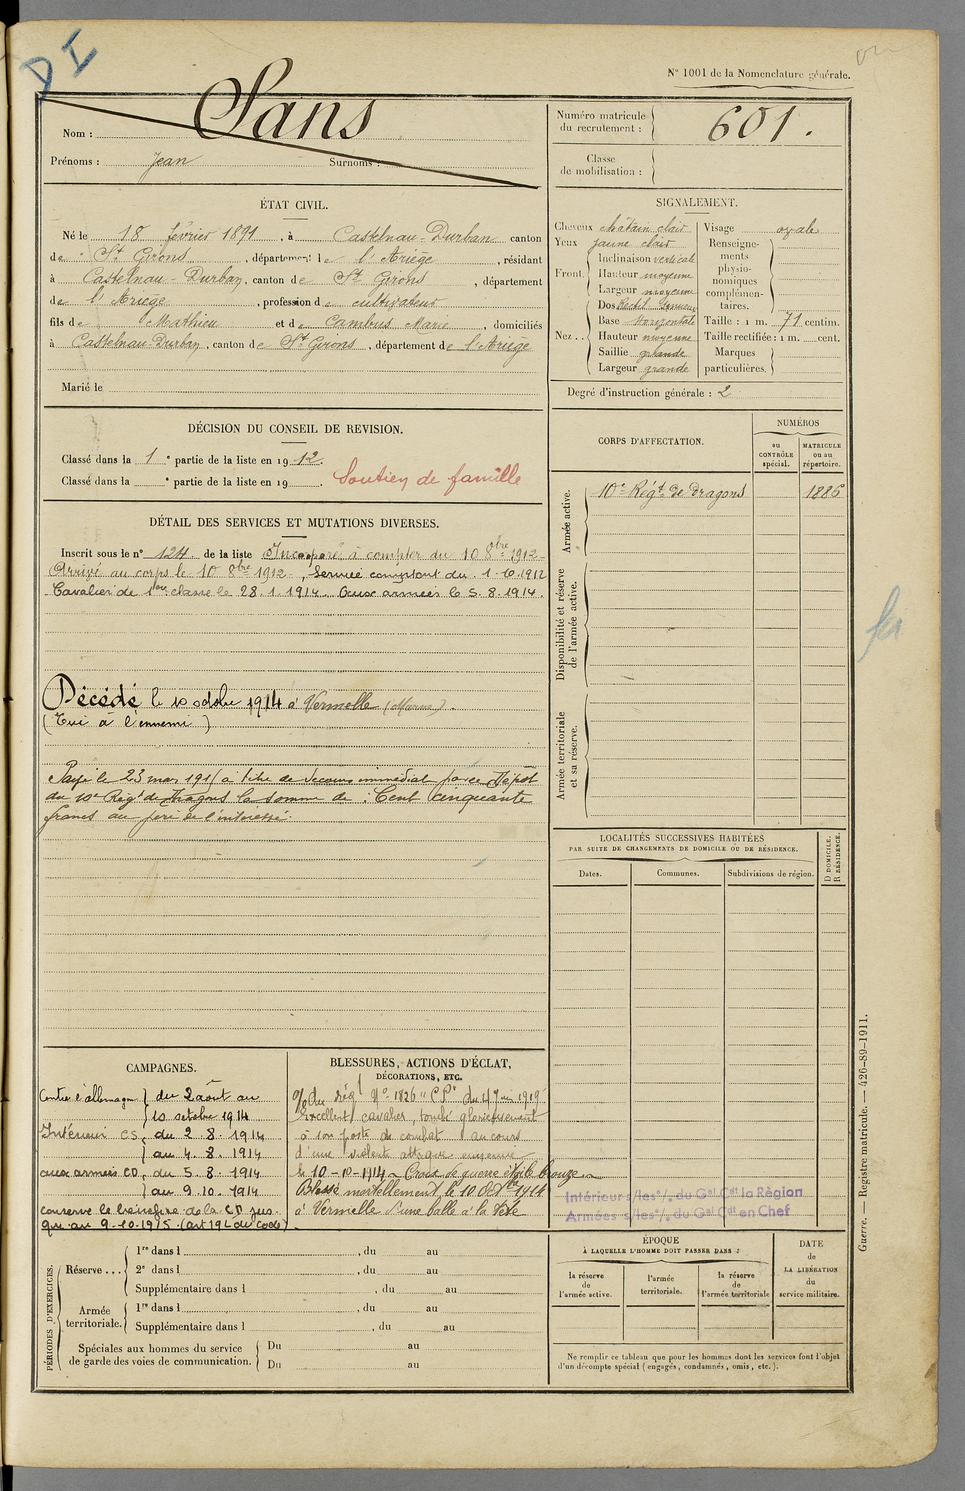 D I
N° 1001 de la Nomenclature générale.
Nom : Sans
Prénoms : Jean Surnoms :
Numéro matricule du recrutement : 601.
Classe de mobilisation :
ÉTAT CIVIL.
Né le 18 février 1891, à Castelnau-Durban canton
de St Girons, département de l'Ariège, résidant
à Castelnau-Durban, canton de St Girons, département
de l'Ariège, profession de cultivateur
fils de Mathieu et de Cambus Marie, domiciliés
à Castelnau-Durban, canton de St Girons, département de l'Ariège
Marié le
SIGNALEMENT.
Cheveux châtain clair
Yeux jaune clair
Front. Inclinaison verticale
Hauteur moyenne
Largeur moyenne
Nez.. Dos Rectil. Sinueux
Base Horizontale
Hauteur moyenne
Saillie grande
Largeur grande
Visage ovale
Renseignements physionomiques complémentaires.
Taille : 1 m. 71 centim.
Taille rectifiée : 1 m. cent.
Marques particulières.
Degré d'instruction générale : 2
DÉCISION DU CONSEIL DE REVISION.
Classé dans la 1e partie de la liste en 1912.
Classé dans la e partie de la liste en 19 . Soutien de famille
CORPS D'AFFECTATION.
NUMÉROS
au CONTRÔLE spécial.
MATRICULE ou au répertoire.
Armée active.
10e Régt de Dragons 1886
Disponibilité et réserve de l'armée active.
Armée territoriale et sa réserve.
DÉTAIL DES SERVICES ET MUTATIONS DIVERSES.
Inscrit sous le n° 124 de la liste Incorporé à compter du 10 8bre 1912
Arrivé au corps le 10 8bre 1912, service comptant du 1-10.1912
Cavalier de 1ère classe le 28.1.1914. Aux armées le 5.8.1914.
Décédé le 10 octobre 1914 à Vermelle (Marne).
(Tué à l'ennemi)
Payé le 23 mars 191 à titre de secours immédiat par le Dépôt
du 10e Régt de Dragons la somme de : Cent cinquante
francs au père de l'intéressé.
LOCALITÉS SUCCESSIVES HABITÉES
PAR SUITE DE CHANGEMENTS DE DOMICILE OU DE RÉSIDENCE.
Dates. Communes. Subdivisions de région.
D DOMICILE. R RÉSIDENCE.
CAMPAGNES.
Contre l'allemagne du 2 août au
10 octobre 1914
Intérieur CS, du 2.8.1914
au 4.8.1914
aux armées CD, du 5.8.1914
au 9.10.1914
conserve le bénéfice de la CD jus
qu'au 9-10-1915 (art 19 L du code)
BLESSURES, ACTIONS D'ÉCLAT,
DÉCORATIONS, ETC.
O/ du régt N° 1826 "C.P" du 1919
Excellent cavalier, tombé glorieusement
à son poste de combat au cours
d'une violente attaque ennemie
le 10-10-1914. Croix de guerre étoile bronze
Blessé mortellement le 10 Octbre 1914
à Vermelle d'une balle à la tête
Intérieur s/les o/. du Gal Cdt la Région
Armées s/les o/. du Gal Cdt en Chef
PÉRIODES D'EXERCICES.
Réserve... 1re dans l , du au
2e dans l , du au
Supplémentaire dans l , du au
Armée territoriale. 1re dans l , du au
Supplémentaire dans l , du au
Spéciales aux hommes du service de garde des voies de communication. Du au
Du au
ÉPOQUE
À LAQUELLE L'HOMME DOIT PASSER DANS :
la réserve de l'armée active.
l'armée territoriale.
la réserve de l'armée territoriale
DATE de LA LIBÉRATION du service militaire.
Ne remplir ce tableau que pour les hommes dont les services font l'objet
d'un décompte spécial (engagés, condamnés, omis, etc.).
Guerre. — Registre matricule. — 426-89-1911.